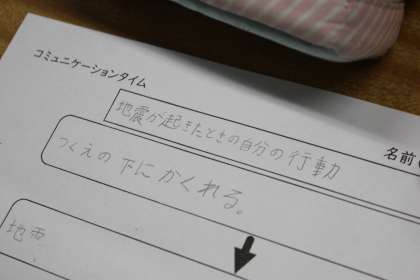 コミュニケーションタイム
地震が起きたときの自分の行動
名前(
つくえの下にかくれる。
地震